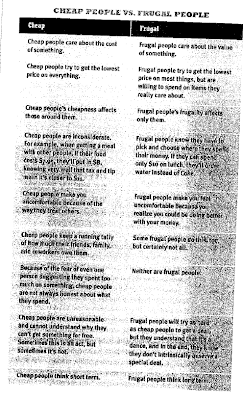 CHEAP PEOPLE VS. FRUGAL PEOPLE
Cheap
Frugal
Cheap people care about the cost
of something.
Frugal people care about the value
of something.
Cheap people try to get the lowest
price on everything.
Frugal people try to get the lowest
price on most things, but are
willing to spend on items they
really care about.
Cheap people's cheapness affects
those around them.
Frugal people's frugality affects
only them.
Cheap people are inconsiderate.
For example, when getting a meal
with other people, if their food
costs they'll put in
knowing very well that tax and tip
make it closer to
Frugal people know they have to
pick and choose where they spend
their money. If they can spend
only $10 on lunch, they'll order
water instead of Coke.
Cheap people make you
uncomfortable because of the
way they treat others.
Frugal people make you feel
uncomfortable because you
realize you could be doing better
with your money.
Cheap people keep a running tally
of how much their friends, family,
and coworkers owe them.
Some frugal people do this, too,
but certainly not all.
Because of the fear of even one
person suggesting they spent too
much on something, cheap people
are not always honest about what
they spend.
Neither are frugal people.
Cheap people are unreasonable
and cannot understand why they
can't get something for free.
Sometimes this is an act, but
sometimes it's not.
Frugal people will try as hard
as cheap people to get a deal,
but they understand that it's a
dance, and in the end, they know
they don't intrinsically deserve a
special deal.
Cheap people think short term.
Frugal people think long term.